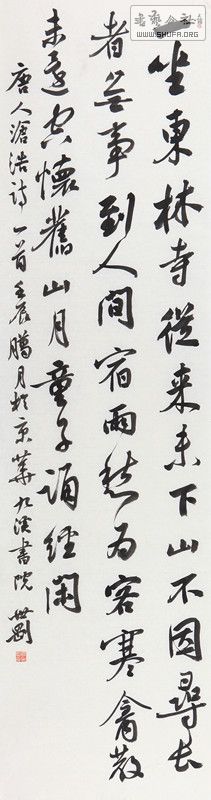 坐東林寺從来未下山不因尋長
者無事到人間宿雨愁為客寒禽散
未還空懷舊山月童子誦經閑
唐人滄浩詩一首壬辰臘月於京華九溪書院 世剛
書藝公社
WWW.SHUFA.ORG